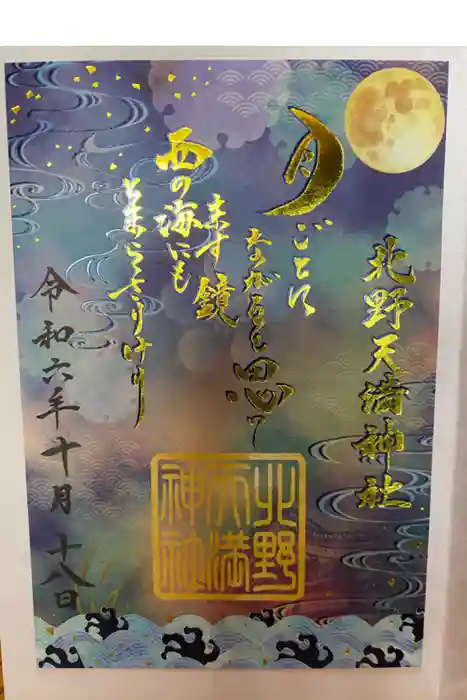 北野天満神社
月ごとに
ながると思し
ます鏡
西の海にも
とまらざりけり
北野
天満
神社
令和六年十月十八日